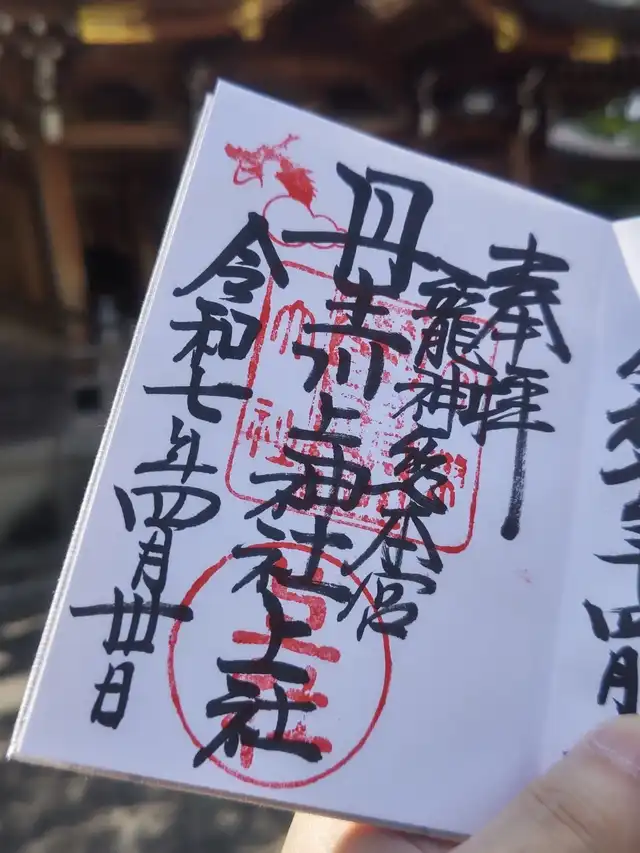 年四月
奉拝
龍神総本宮
丹生川上神社上社
令和七年四月卅日